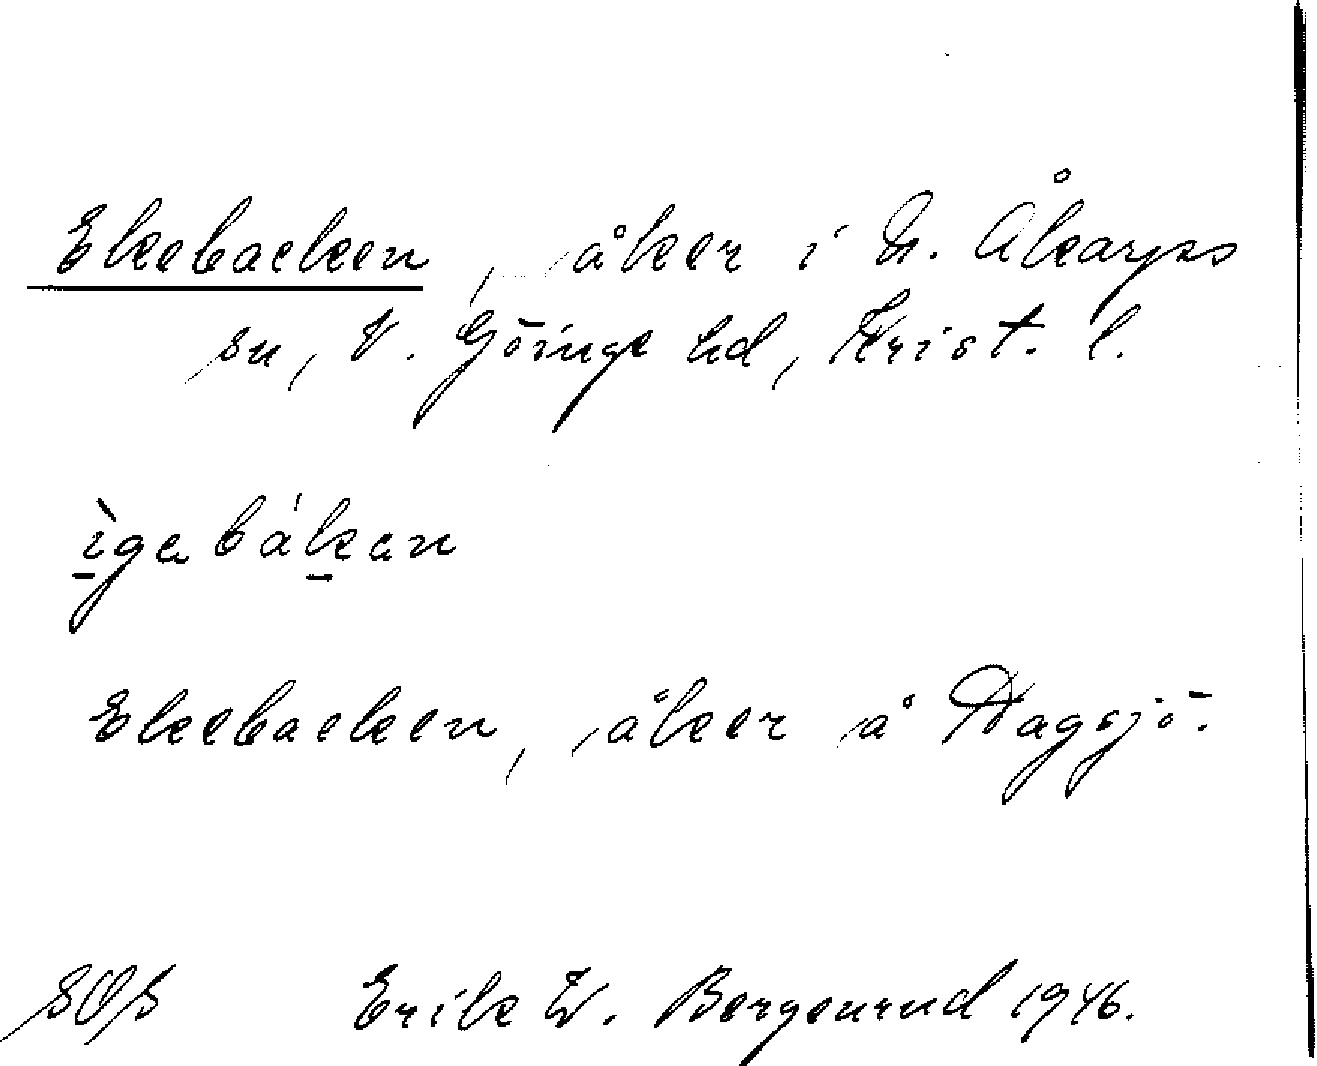 Ekebacken, åker i N. Åkarps
sn, V. Göinge hd, Krist. l.
ìgabákan
Ekebacken, åker å Hagsjö.
SOS Erik W. Bergenrud 1946.